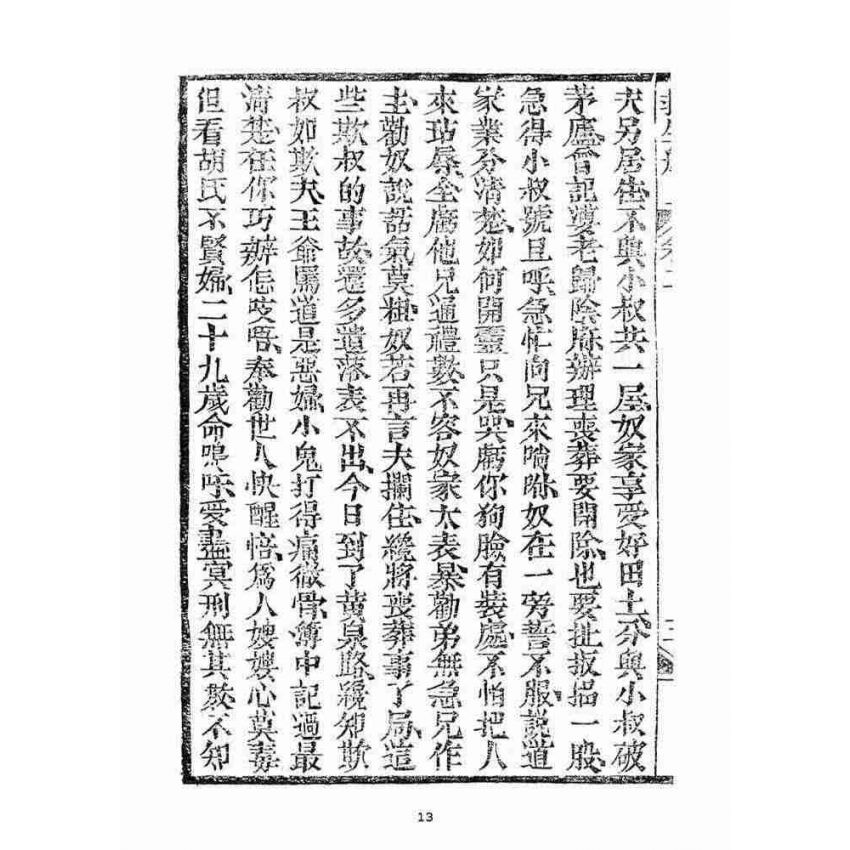 夫另居住不與小叔共一屋奴家享受好田土分與小叔破
茅廬曾記婆老歸陰府辦理喪葬要開除也要扯扳搯一股
急得小叔號且呼急忙向兄來喃喃奴在一旁誓不服說道
家業分清楚如何開靈只是哭虧你狗臉有裝處不怕把人
來玷辱全虧他兄通禮數不容奴家太表暴勸弟無急兄作
主勸奴說話氣莫粗奴若再言夫攔住纔將喪葬事了局這
些欺叔的事故還多遺落表不出今日到了黄泉路纔知欺
叔如欺夫王爺罵道是惡婦小鬼打得痛徹骨簿中記過最
清楚任你巧辨怎吱唔奉勸世人快醒悟為人嫂嫂心莫毒
但看胡氏不賢婦二十九歲命嗚呼受盡冥刑無其數不知
13